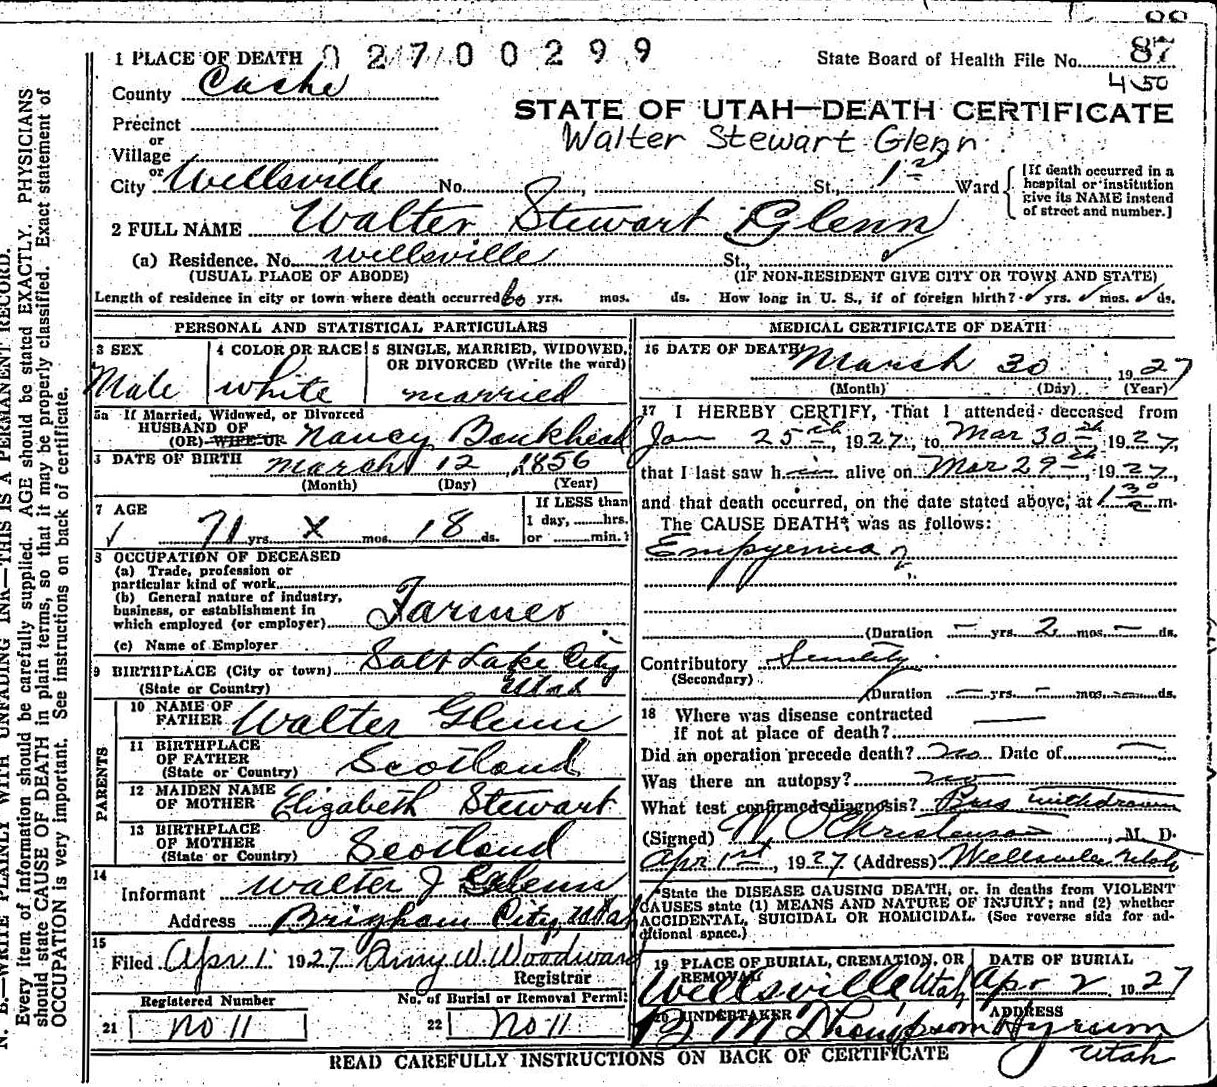 88
1 PLACE OF DEATH 0 2 7 0 0 2 9 9 State Board of Health File No. 87
4 50
County Cache
STATE OF UTAH—DEATH CERTIFICATE
Precinct
Walter Stewart Glenn
or
Village
or
City Wellsville No. St., 1st Ward
[If death occurred in a
hospital or institution
give its NAME instead
of street and number.]
2 FULL NAME Walter Stewart Glenn
(a) Residence. No. Wellsville St.,
(USUAL PLACE OF ABODE) (IF NON-RESIDENT GIVE CITY OR TOWN AND STATE)
Length of residence in city or town where death occurred 60 yrs. mos. ds. How long in U. S., if of foreign birth? yrs. mos. ds.
PERSONAL AND STATISTICAL PARTICULARS
3 SEX
Male
4 COLOR OR RACE
white
5 SINGLE, MARRIED, WIDOWED,
OR DIVORCED (Write the word)
married
5a If Married, Widowed, or Divorced
HUSBAND OF
(OR) WIFE OF Nancy Bankhead
DATE OF BIRTH March 12 1856
(Month) (Day) (Year)
7 AGE
71 yrs. x mos. 18 ds.
If LESS than
1 day, hrs.
or min.
8 OCCUPATION OF DECEASED
(a) Trade, profession or
particular kind of work
(b) General nature of industry,
business, or establishment in
which employed (or employer) Farmer
(c) Name of Employer
9 BIRTHPLACE (City or town) Salt Lake City
(State or Country) Utah
PARENTS
10 NAME OF
FATHER Walter Glenn
11 BIRTHPLACE
OF FATHER
(State or Country) Scotland
12 MAIDEN NAME
OF MOTHER Elizabeth Stewart
13 BIRTHPLACE
OF MOTHER
(State or Country) Scotland
14
Informant Walter J Glenn
Address Brigham City, Utah
15
Filed Apr 1 1927 Amy W. Woodward
Registrar
Registered Number No. of Burial or Removal Permit
21 no 11 22 no 11
MEDICAL CERTIFICATE OF DEATH
16 DATE OF DEATH
March 30 1927
(Month) (Day) (Year)
17 I HEREBY CERTIFY, That I attended deceased from
Jan 25th, 1927, to Mar 30th, 1927,
that I last saw him alive on Mar 29th, 1927,
and that death occurred, on the date stated above, at 1 30 a m.
The CAUSE DEATH* was as follows:
Empyemia
(Duration — yrs. 2 mos. — ds.
Contributory Senility
(Secondary)
(Duration — yrs. — mos. — ds.
18 Where was disease contracted
if not at place of death?
Did an operation precede death? no Date of
Was there an autopsy? no
What test confirmed diagnosis? Pus withdrawn
(Signed) W O Christenson M. D.
Apr 1st, 1927 (Address) Wellsville Utah
*State the DISEASE CAUSING DEATH, or, in deaths from VIOLENT
CAUSES state (1) MEANS AND NATURE OF INJURY; and (2) whether
ACCIDENTAL, SUICIDAL OR HOMICIDAL. (See reverse side for ad-
ditional space.)
19 PLACE OF BURIAL, CREMATION, OR
REMOVAL
Wellsville Utah
DATE OF BURIAL
Apr 2 1927
20 UNDERTAKER
M Thompson
ADDRESS
Hyrum
Utah
READ CAREFULLY INSTRUCTIONS ON BACK OF CERTIFICATE
N. B.—WRITE PLAINLY WITH UNFADING INK—THIS IS A PERMANENT RECORD.
Every item of information should be carefully supplied. AGE should be stated EXACTLY. PHYSICIANS
should state CAUSE OF DEATH in plain terms, so that it may be properly classified. Exact statement of
OCCUPATION is very important. See instructions on back of certificate.